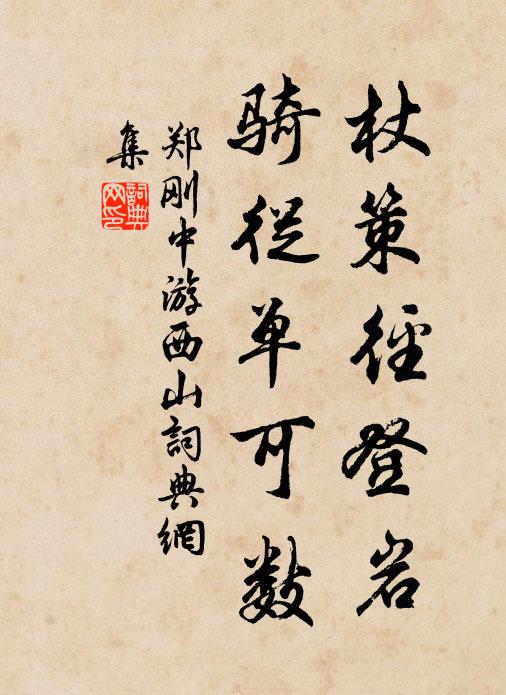 杖策径登岩
骑从单可数
郑刚中游西山詞典網
集
詞典网印